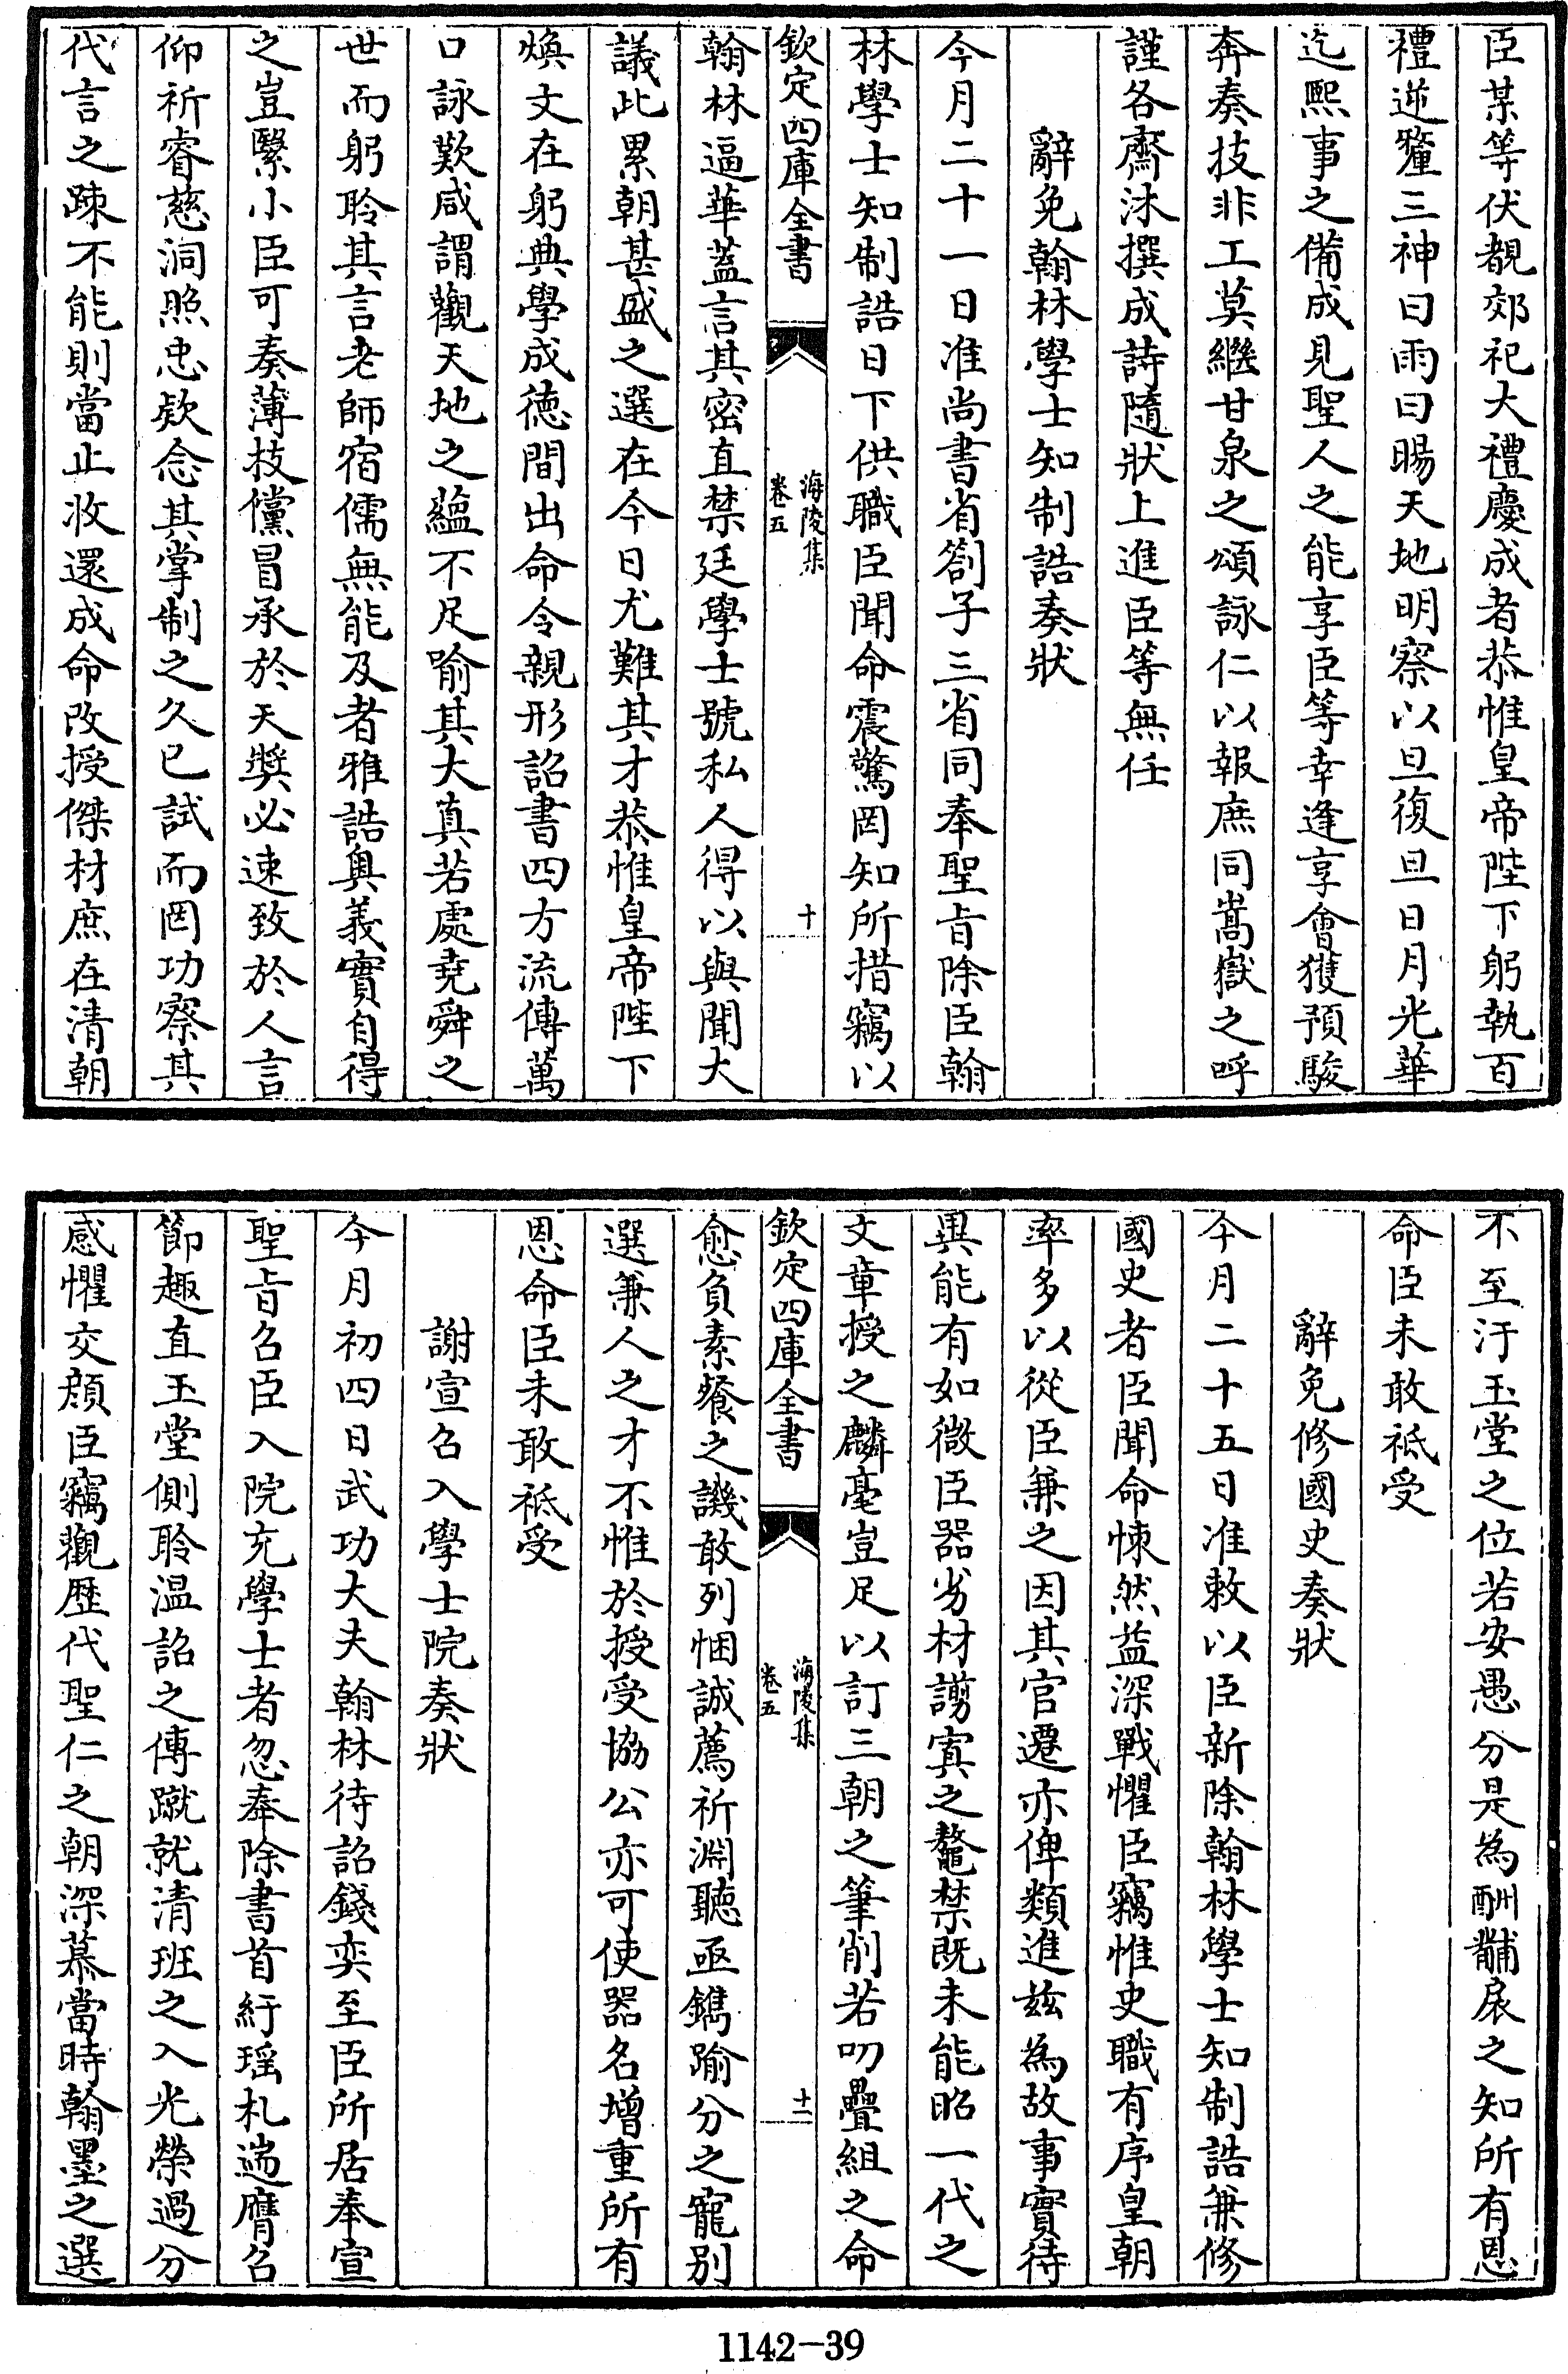 臣某等伏覩郊祀大禮慶成者恭惟皇帝陛下躬執百
禮逆釐三神曰雨曰暘天地明察以旦復旦日月光華
迄熙事之備成見聖人之能享臣等幸逢享會獲預駿
奔奏技非工莫繼甘泉之頌詠仁以報庶同嵩嶽之呼
謹各齋沐撰成詩隨狀上進臣等無任
辭免翰林學士知制誥奏狀
今月二十一日准尚書省劄子三省同奉聖旨除臣翰
林學士知制誥日下供職臣聞命震驚罔知所措竊以
欽定四庫全書
海陵集
卷五
十
翰林逼華蓋言其密直禁廷學士號私人得以與聞大
議此累朝甚盛之選在今日尤難其才恭惟皇帝陛下
煥文在躬典學成德間出命令親形詔書四方流傳萬
口詠歎咸謂觀天地之蘊不足喻其大真若處堯舜之
世而躬聆其言老師宿儒無能及者雅誥奥義實自得
之豈繄小臣可奏薄技儻冒承於天奬必速致於人言
仰祈睿慈洞照忠欵念其掌制之久已試而罔功察其
代言之踈不能則當止收還成命改授傑材庶在清朝
不至汙玉堂之位若安愚分是為酬黼扆之知所有恩
命臣未敢祗受
辭免修國史奏狀
今月二十五日准敕以臣新除翰林學士知制誥兼修
國史者臣聞命悚然益深戰懼臣竊惟史職有序皇朝
率多以從臣兼之因其官遷亦俾類進兹為故事實待
異能有如微臣器劣材謭寘之鼇禁既未能昭一代之
文章授之麟毫豈足以訂三朝之筆削若叨疊組之命
欽定四庫全書
海陵集
卷五
十一
愈負素餐之譏敢列悃誠薦祈淵聽亟鐫踰分之寵别
選兼人之才不惟於授受協公亦可使器名增重所有
恩命臣未敢祗受
謝宣召入學士院奏狀
今月初四日武功大夫翰林待詔錢奕至臣所居奉宣
聖旨召臣入院充學士者忽奉除書首紆瑶札遄膺召
節趣直玉堂側聆温詔之傳蹴就清班之入光榮過分
感懼交顔臣竊觀歷代聖仁之朝深慕當時翰墨之選
1142-39